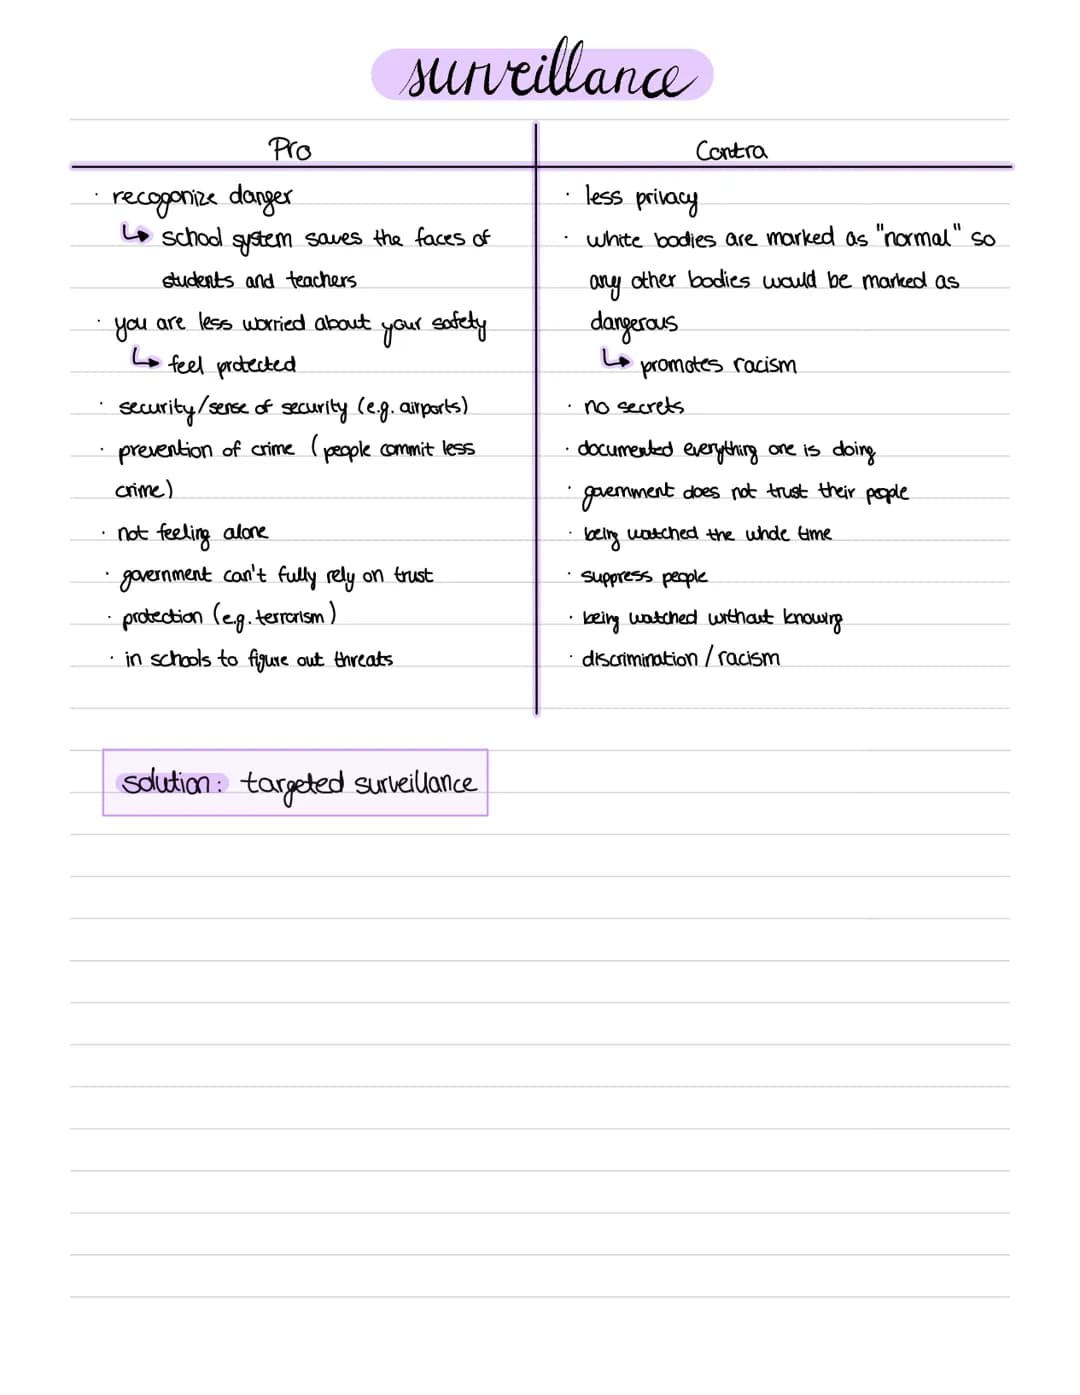 surveillance
Pro
· recogonize danger
↳ school system saves the faces of
students and teachers
· you are less worried about your safety
↳ feel protected
· security/sense of security (e.g. airports)
· prevention of crime (people commit less
crime)
· not feeling alone
· government can't fully rely on trust
· protection (e.g. terrorism)
· in schools to figure out threats
Contra
· less privacy
· white bodies are marked as "normal" so
any other bodies would be marked as
dangerous
↳ promotes racism
· no secrets
· documented everything one is doing
· government does not trust their people
· being watched the whole time
· suppress people
· being watched without knowing
· discrimination / racism
solution: targeted surveillance